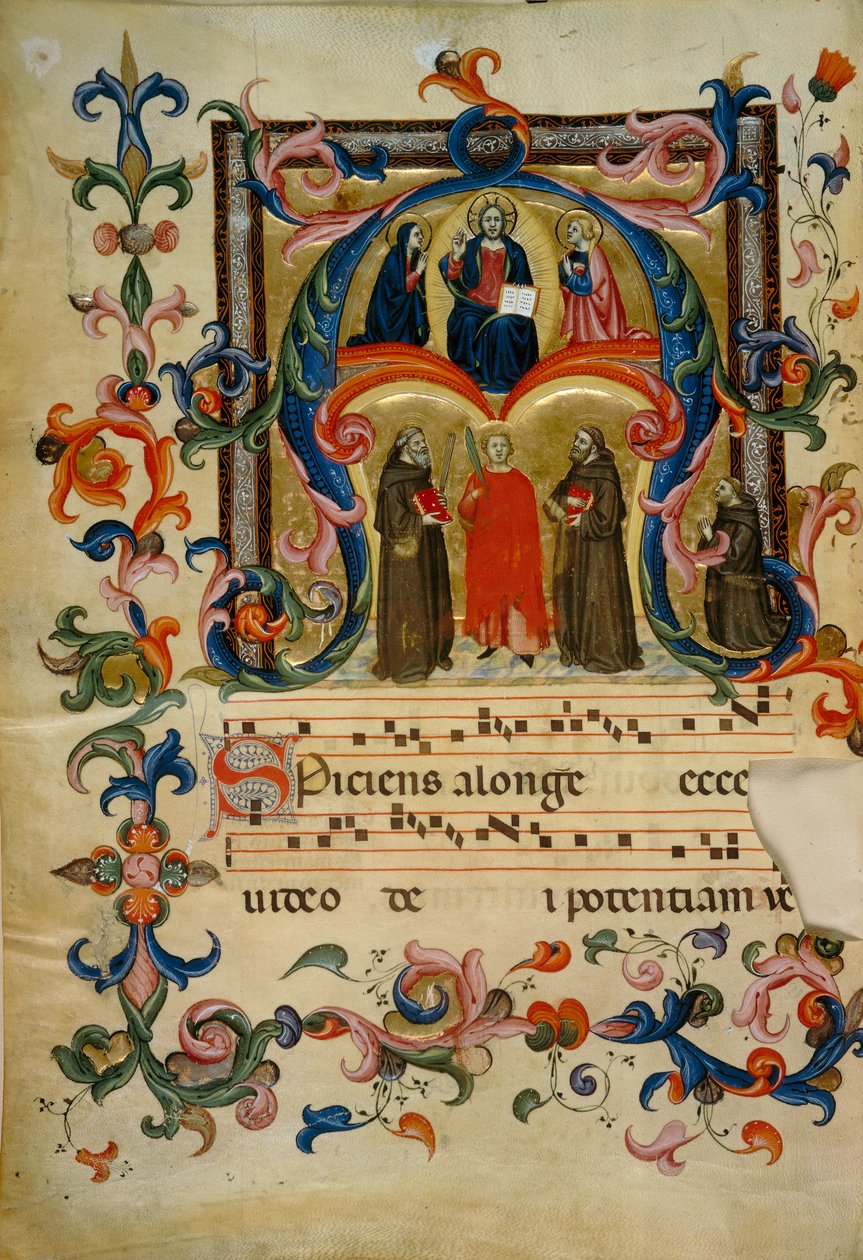 ASPiciens alonge ecce
uideo de i potentiam ve